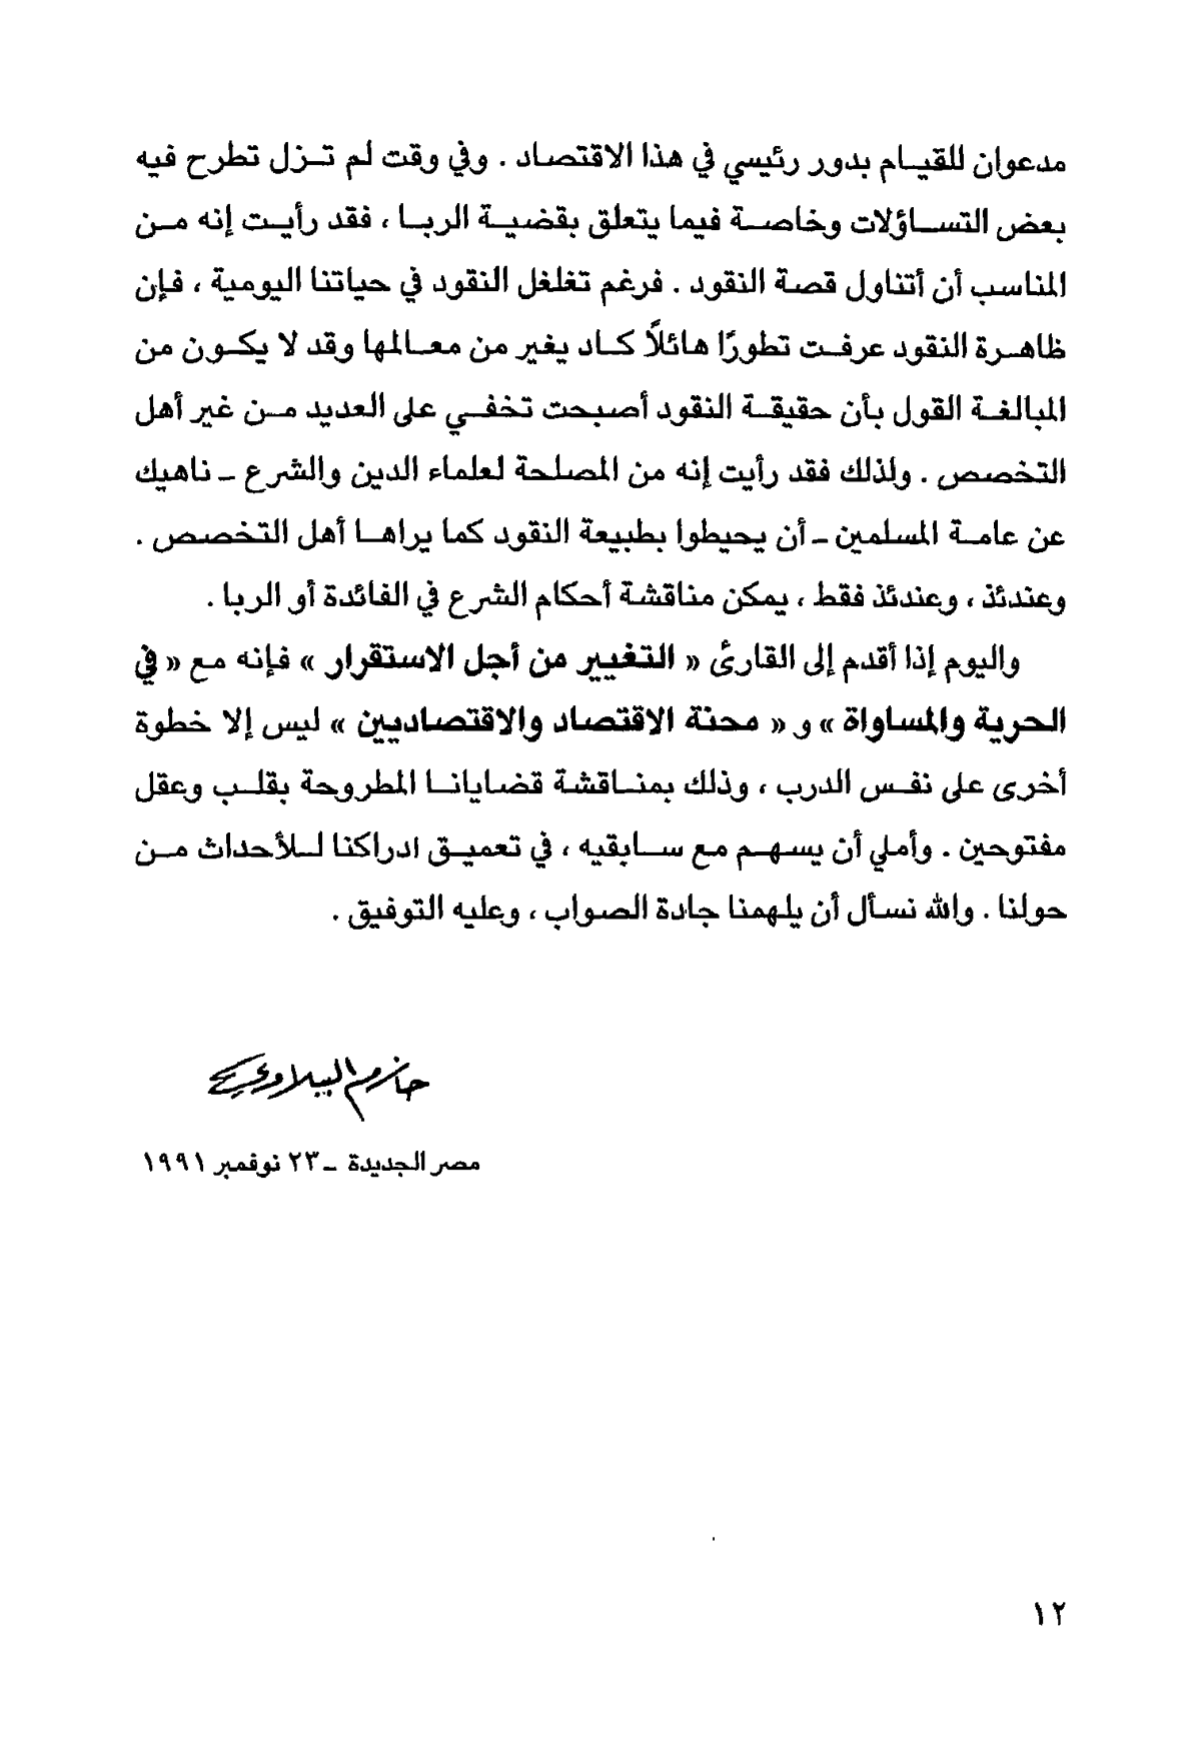 مدعوان للقيام بدور رئيسي في هذا الاقتصاد . وفي وقت لم تزل تطرح فيه
بعض التساؤلات وخاصة فيما يتعلق بقضية الربا ، فقد رأيت إنه من
المناسب أن أتناول قصة النقود . فرغم تغلغل النقود في حياتنا اليومية ، فإن
ظاهرة النقود عرفت تطورًا هائلاً كاد يغير من معالمها وقد لا يكون من
المبالغة القول بأن حقيقة النقود أصبحت تخفي على العديد من غير أهل
التخصص . ولذلك فقد رأيت إنه من المصلحة لعلماء الدين والشرع ـ ناهيك
عن عامة المسلمين ـ أن يحيطوا بطبيعة النقود كما يراها أهل التخصص .
وعندئذ ، وعندئذ فقط ، يمكن مناقشة أحكام الشرع في الفائدة أو الربا .
واليوم إذا أقدم إلى القارئ « التغيير من أجل الاستقرار » فإنه مع « في
الحرية والمساواة » و « محنة الاقتصاد والاقتصاديين » ليس إلا خطوة
أخرى على نفس الدرب ، وذلك بمناقشة قضايانا المطروحة بقلب وعقل
مفتوحين . وأملي أن يسهم مع سابقيه ، في تعميق ادراكنا للأحداث من
حولنا . والله نسأل أن يلهمنا جادة الصواب ، وعليه التوفيق .
حازم الببلاوي
مصر الجديدة ـ ٢٣ نوفمبر ١٩٩١
١٢